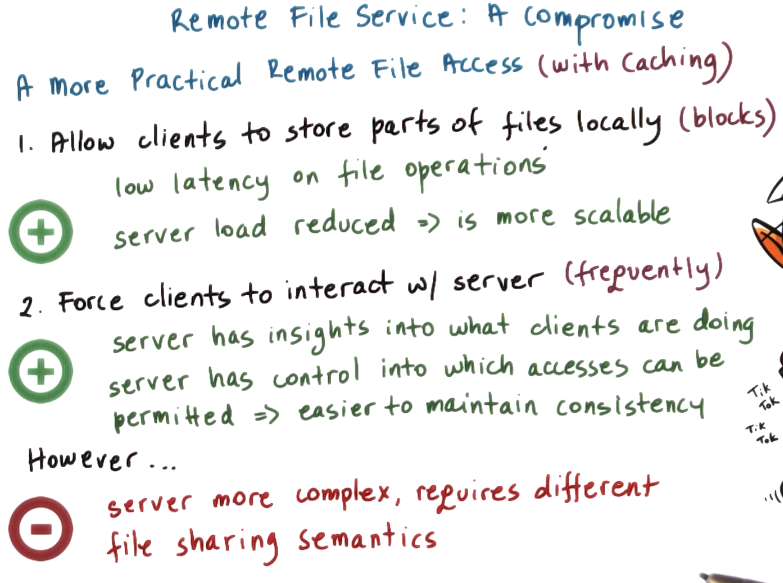 Remote File Service: A Compromise
A More Practical Remote File Access (with Caching)
1. Allow clients to store parts of files locally (blocks)
low latency on file operations
server load reduced => is more scalable
2. Force clients to interact w/ server (frequently)
server has insights into what clients are doing
server has control into which accesses can be
permitted => easier to maintain consistency
However...
server more complex, requires different
file sharing semantics
Tik
Tok
Tik
Tok